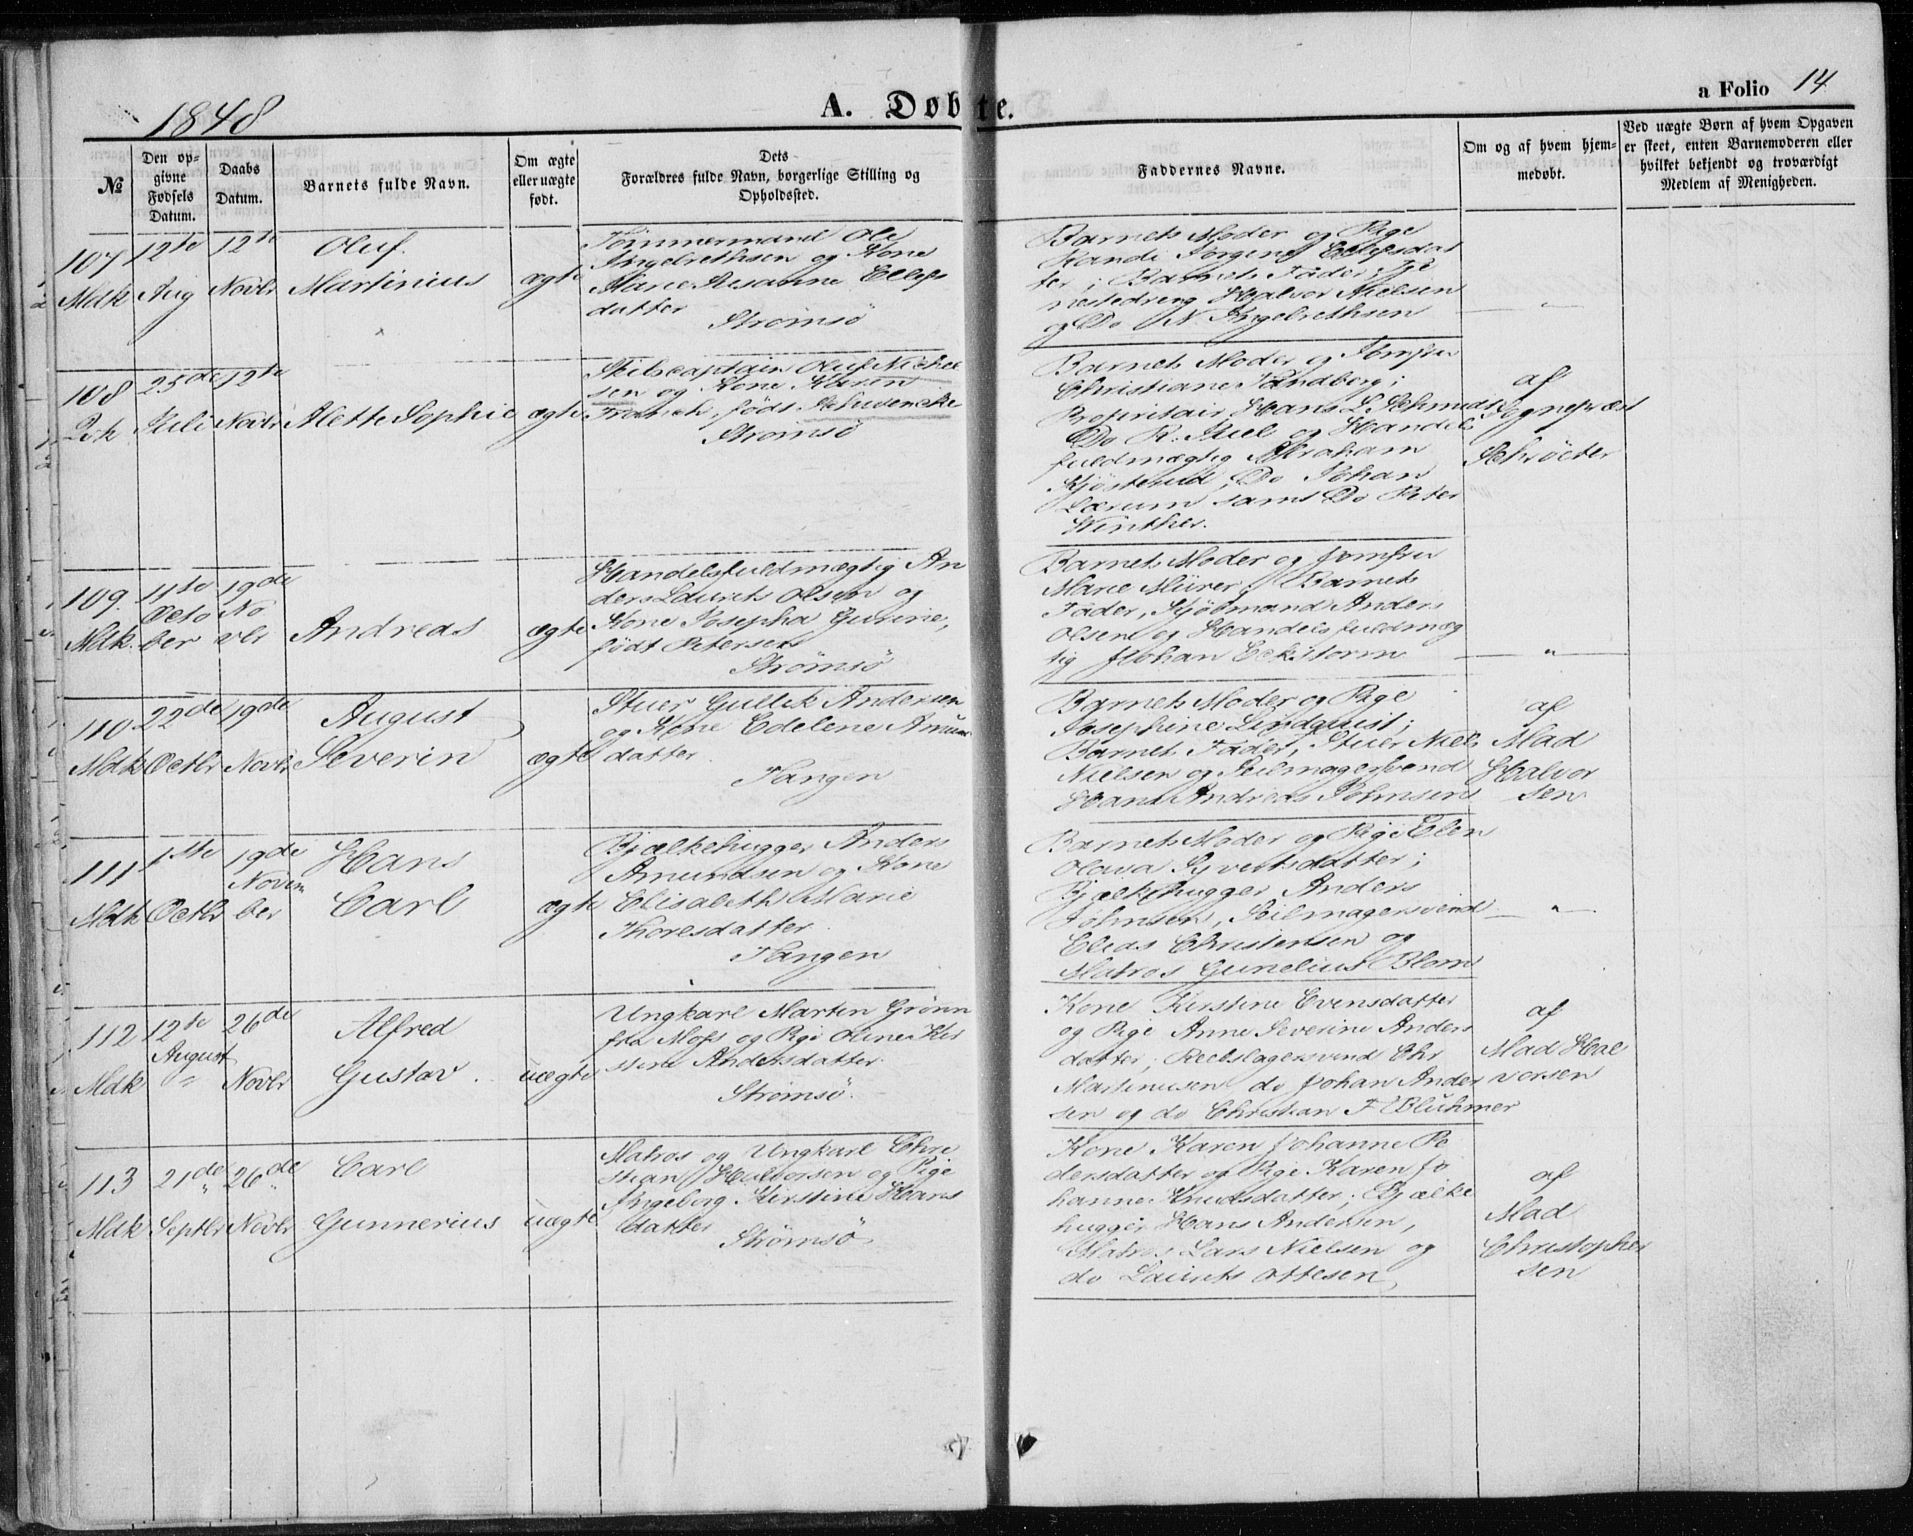 1848
A. Døbte.
a Folio 14
№
Den op-
givne
Fødsels
Datum.
Daabs
Datum.
Barnets fulde Navn.
Om ægte
eller uægte
født.
Dets
Forældres fulde Navn, borgerlige Stilling og
Opholdssted.
Faddernes Navne.
Om og af hvem hjem-
medøbt.
Ved uægte Børn af hvem Opgaven
er skeet, enten Barnemoderen eller
hvilket bekjendt og troværdigt
Medlem af Menigheden.
107
Mdk
12te
Aug
12te
Novbr
Oluf
Martinius
ægte
Tømmermand Ole
Ingebrethsen og Kone
Marie Susanne Ellefs
datter
Strømsö
Barnets Moder og Pige
Jorgine Ellefsdat
ter; Barnets Fader, Tje
nestedreng Halvor Nielsen
og Do N. Ingebrethsen
108
Pik
25de
Juli
12te
Novbr
Alette Sophie
ægte
Skibscaptain Oluf Nickel
sen og Kone Karen
født
Strømsö
Barnets Moder og Jomfru
Christiane Tandberg;
Proprietair Hans L. Schmidt
Do R. Juel og Handels
fuldmægtig Abraham
Do Johan
Lærum samt Do Peter
Winther.
af
Sognepræst
Schröeter
109.
Mdk.
11te
Octo
ber
19de
No
vbr
Andreas
ægte
Handelsfuldmægtig An
ders Laurits Olsen og
Kone Josepha Gurine,
født Petersen
Strømsö
Barnets Moder og Jomfru
Marie Mürer; Barnets
Fader, Kjöbmand Anders
Olsen og Handelsfuldmæg
tig Johan Eckstorm
"
110
Mdk
22de
Octbr
19de
Novbr
August
Severin
ægte
Stuer Gullik Andersen
og Kone Edelene Amun
datter.
Tangen
Barnets Moder og Pige
Josephine Lindquist;
Barnets Fader, Stuer Niels
Nielsen og Seilmagersvend
Hans Andreas Johnsen
af
Mad
Halvor
sen
111
Mdk
1ste
Octbr
19de
Novem
ber
Hans
Carl
ægte
Bjælkehugger Anders
Amundsen og Kone
Elisabeth Marie
Thoresdatter.
Tangen
Barnets Moder og Pige Elen
Olava Syvertsdatter;
Bjælkehugger Anders
Johnsen, Seilmagersvend
Elias Christensen og
Matros Gunelius Blom
"
112
Mdk
12te
August
"
26de
Novbr
Alfred
Gustav.
uægte
Ungkarl Martin Grönn
fra Moss og Pige Oline Kir
stine Andersdatter.
Strømsö.
Kone Kirstine Evensdatter
og Pige Anne Severine Anders
datter; Reebslagersvend Chr
Martinusen do Johan Ander
sen og do Christian F. Blühmer
af
Mad Hal
vorsen
113
Mdk
21de
Septbr
26de
Novbr
Carl
Gunnerius
uægte
Matros og Ungkarl Chri
stian Halvorsen og Pige
Ingeborg Kirstine Hans
datter
Strømsö
Kone Karen Johanne Pe
dersdatter og Pige Karen Jo
hanne Knudsdatter; Bjælke
hugger Hans Andersen,
Matros Lars Nielsen og
do Laurits Ottesen,
af
Mad
Christopher
sen